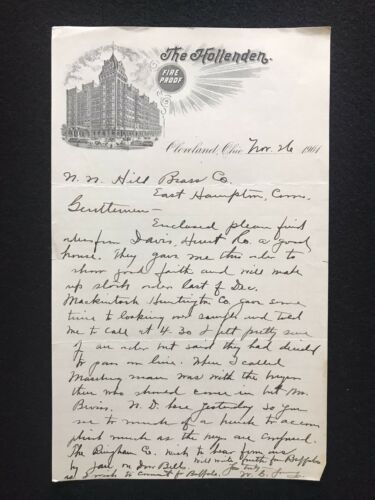 The Hollenden.
FIRE PROOF
Cleveland, Ohio Nov. 26 1901
N. N. Hill Brass Co.
East Hampton, Conn.
Gentlemen—
Enclosed please find
order from Davis, Hunt Co. a good
house. They gave me this order to
show good faith and will make
up stock order last of Dec.
Mackintosh Huntington Co. gave some
time to looking over samples and told
me to call at 4.30 I felt pretty sure
of an order but said they had decided
to pass on line. When I called
man was with the buyer
then who should come in but Mr.
Bevin. N. D. here yesterday so
me to much of a to
plish much as the men are confused.
The Bingham Co. wish to hear from us
by Jan on Bells
will write for Buffalo
as I wish to Buffalo. Yours truly